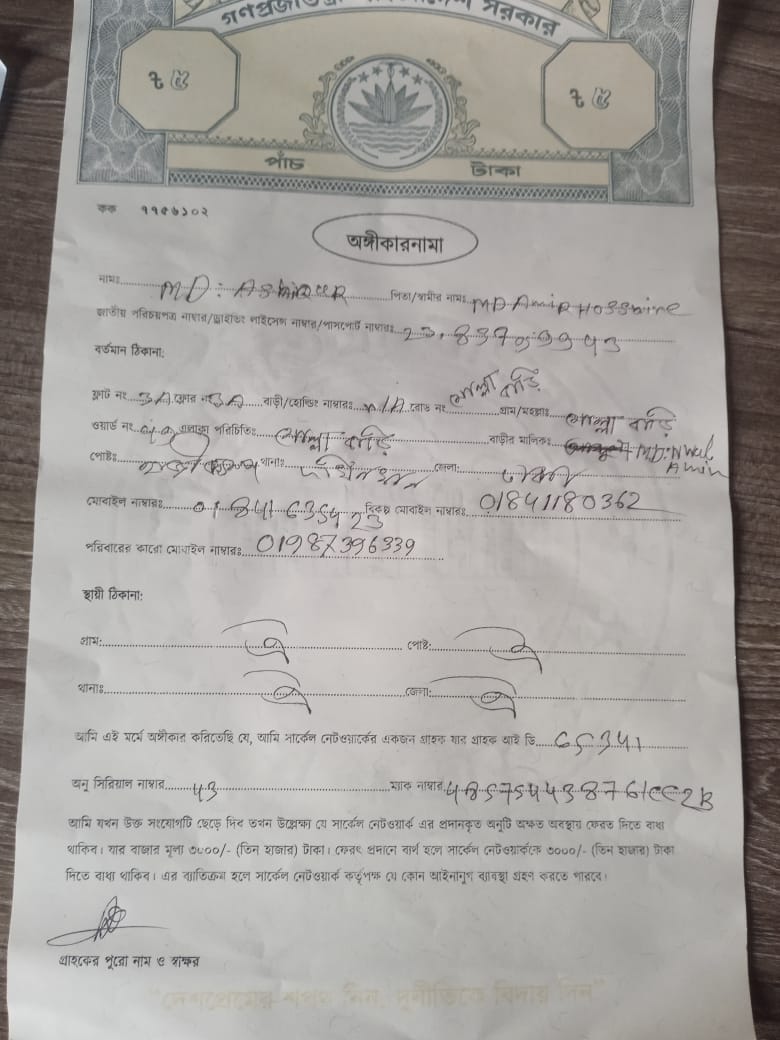 গণপ্রজাতন্ত্রী বাংলাদেশ সরকার
৳ ৫ ৳ ৫
পাঁচ টাকা
কক ৭৭৫৬১০২
অঙ্গীকারনামা
নামঃ MD: পিতা/স্বামীর নামঃ MD Amir Hosshine
জাতীয় পরিচয়পত্র নাম্বার/ড্রাইভিং লাইসেন্স নাম্বার/পাসপোর্ট নাম্বারঃ
বর্তমান ঠিকানা:
ফ্লাট নং 3A ফ্লোর নং 3A বাড়ী/হোল্ডিং নাম্বারঃ N/A রোড নং মোল্লা বাড়ি গ্রাম/মহল্লাঃ মোল্লা বাড়ি
ওয়ার্ড নং এলাকা পরিচিতিঃ মোল্লা বাড়ি বাড়ীর মালিকঃ MD: Amin
পোষ্টঃ থানাঃ দক্ষিনখান জেলাঃ ঢাকা
মোবাইল নাম্বারঃ 01841635423 বিকল্প মোবাইল নাম্বারঃ 01841180362
পরিবারের কারো মোবাইল নাম্বারঃ 01987396339
স্থায়ী ঠিকানা:
গ্রাম: ঐ পোষ্ট: ঐ
থানাঃ ঐ জেলা: ঐ
আমি এই মর্মে অঙ্গীকার করিতেছি যে, আমি সার্কেল নেটওয়ার্কের একজন গ্রাহক যার গ্রাহক আই ডি 65341
অনু সিরিয়াল নাম্বার 43 ম্যাক নাম্বার
আমি যখন উক্ত সংযোগটি ছেড়ে দিব তখন উল্লেক্ষ্য যে সার্কেল নেটওয়ার্ক এর প্রদানকৃত অনুটি অক্ষত অবস্থায় ফেরত দিতে বাধ্য
থাকিব। যার বাজার মূল্য ৩০০০/- (তিন হাজার) টাকা। ফেরৎ প্রদানে ব্যর্থ হলে সার্কেল নেটওয়ার্ককে ৩০০০/- (তিন হাজার) টাকা
দিতে বাধ্য থাকিব। এর ব্যাতিক্রম হলে সার্কেল নেটওয়ার্ক কর্তৃপক্ষ যে কোন আইনানুগ ব্যবস্থা গ্রহণ করতে পারবে।
গ্রাহকের পুরো নাম ও স্বাক্ষর
"দেশপ্রেমের শপথ নিন, দুর্নীতিকে বিদায় দিন"